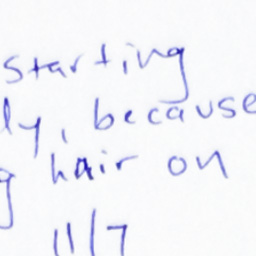 starting
ly, because
g hair on
11/7